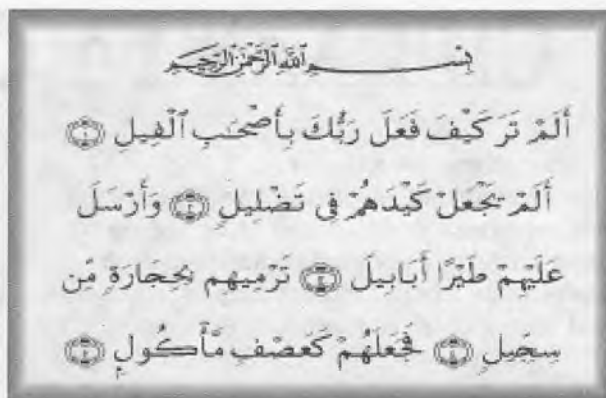 بِسْمِ ٱللَّهِ ٱلرَّحْمَٰنِ ٱلرَّحِيمِ
أَلَمْ تَرَ كَيْفَ فَعَلَ رَبُّكَ بِأَصْحَٰبِ ٱلْفِيلِ ۝١
أَلَمْ يَجْعَلْ كَيْدَهُمْ فِى تَضْلِيلٍ ۝٢ وَأَرْسَلَ
عَلَيْهِمْ طَيْرًا أَبَابِيلَ ۝٣ تَرْمِيهِم بِحِجَارَةٍ مِّن
سِجِّيلٍ ۝٤ فَجَعَلَهُمْ كَعَصْفٍ مَّأْكُولٍۭ ۝٥